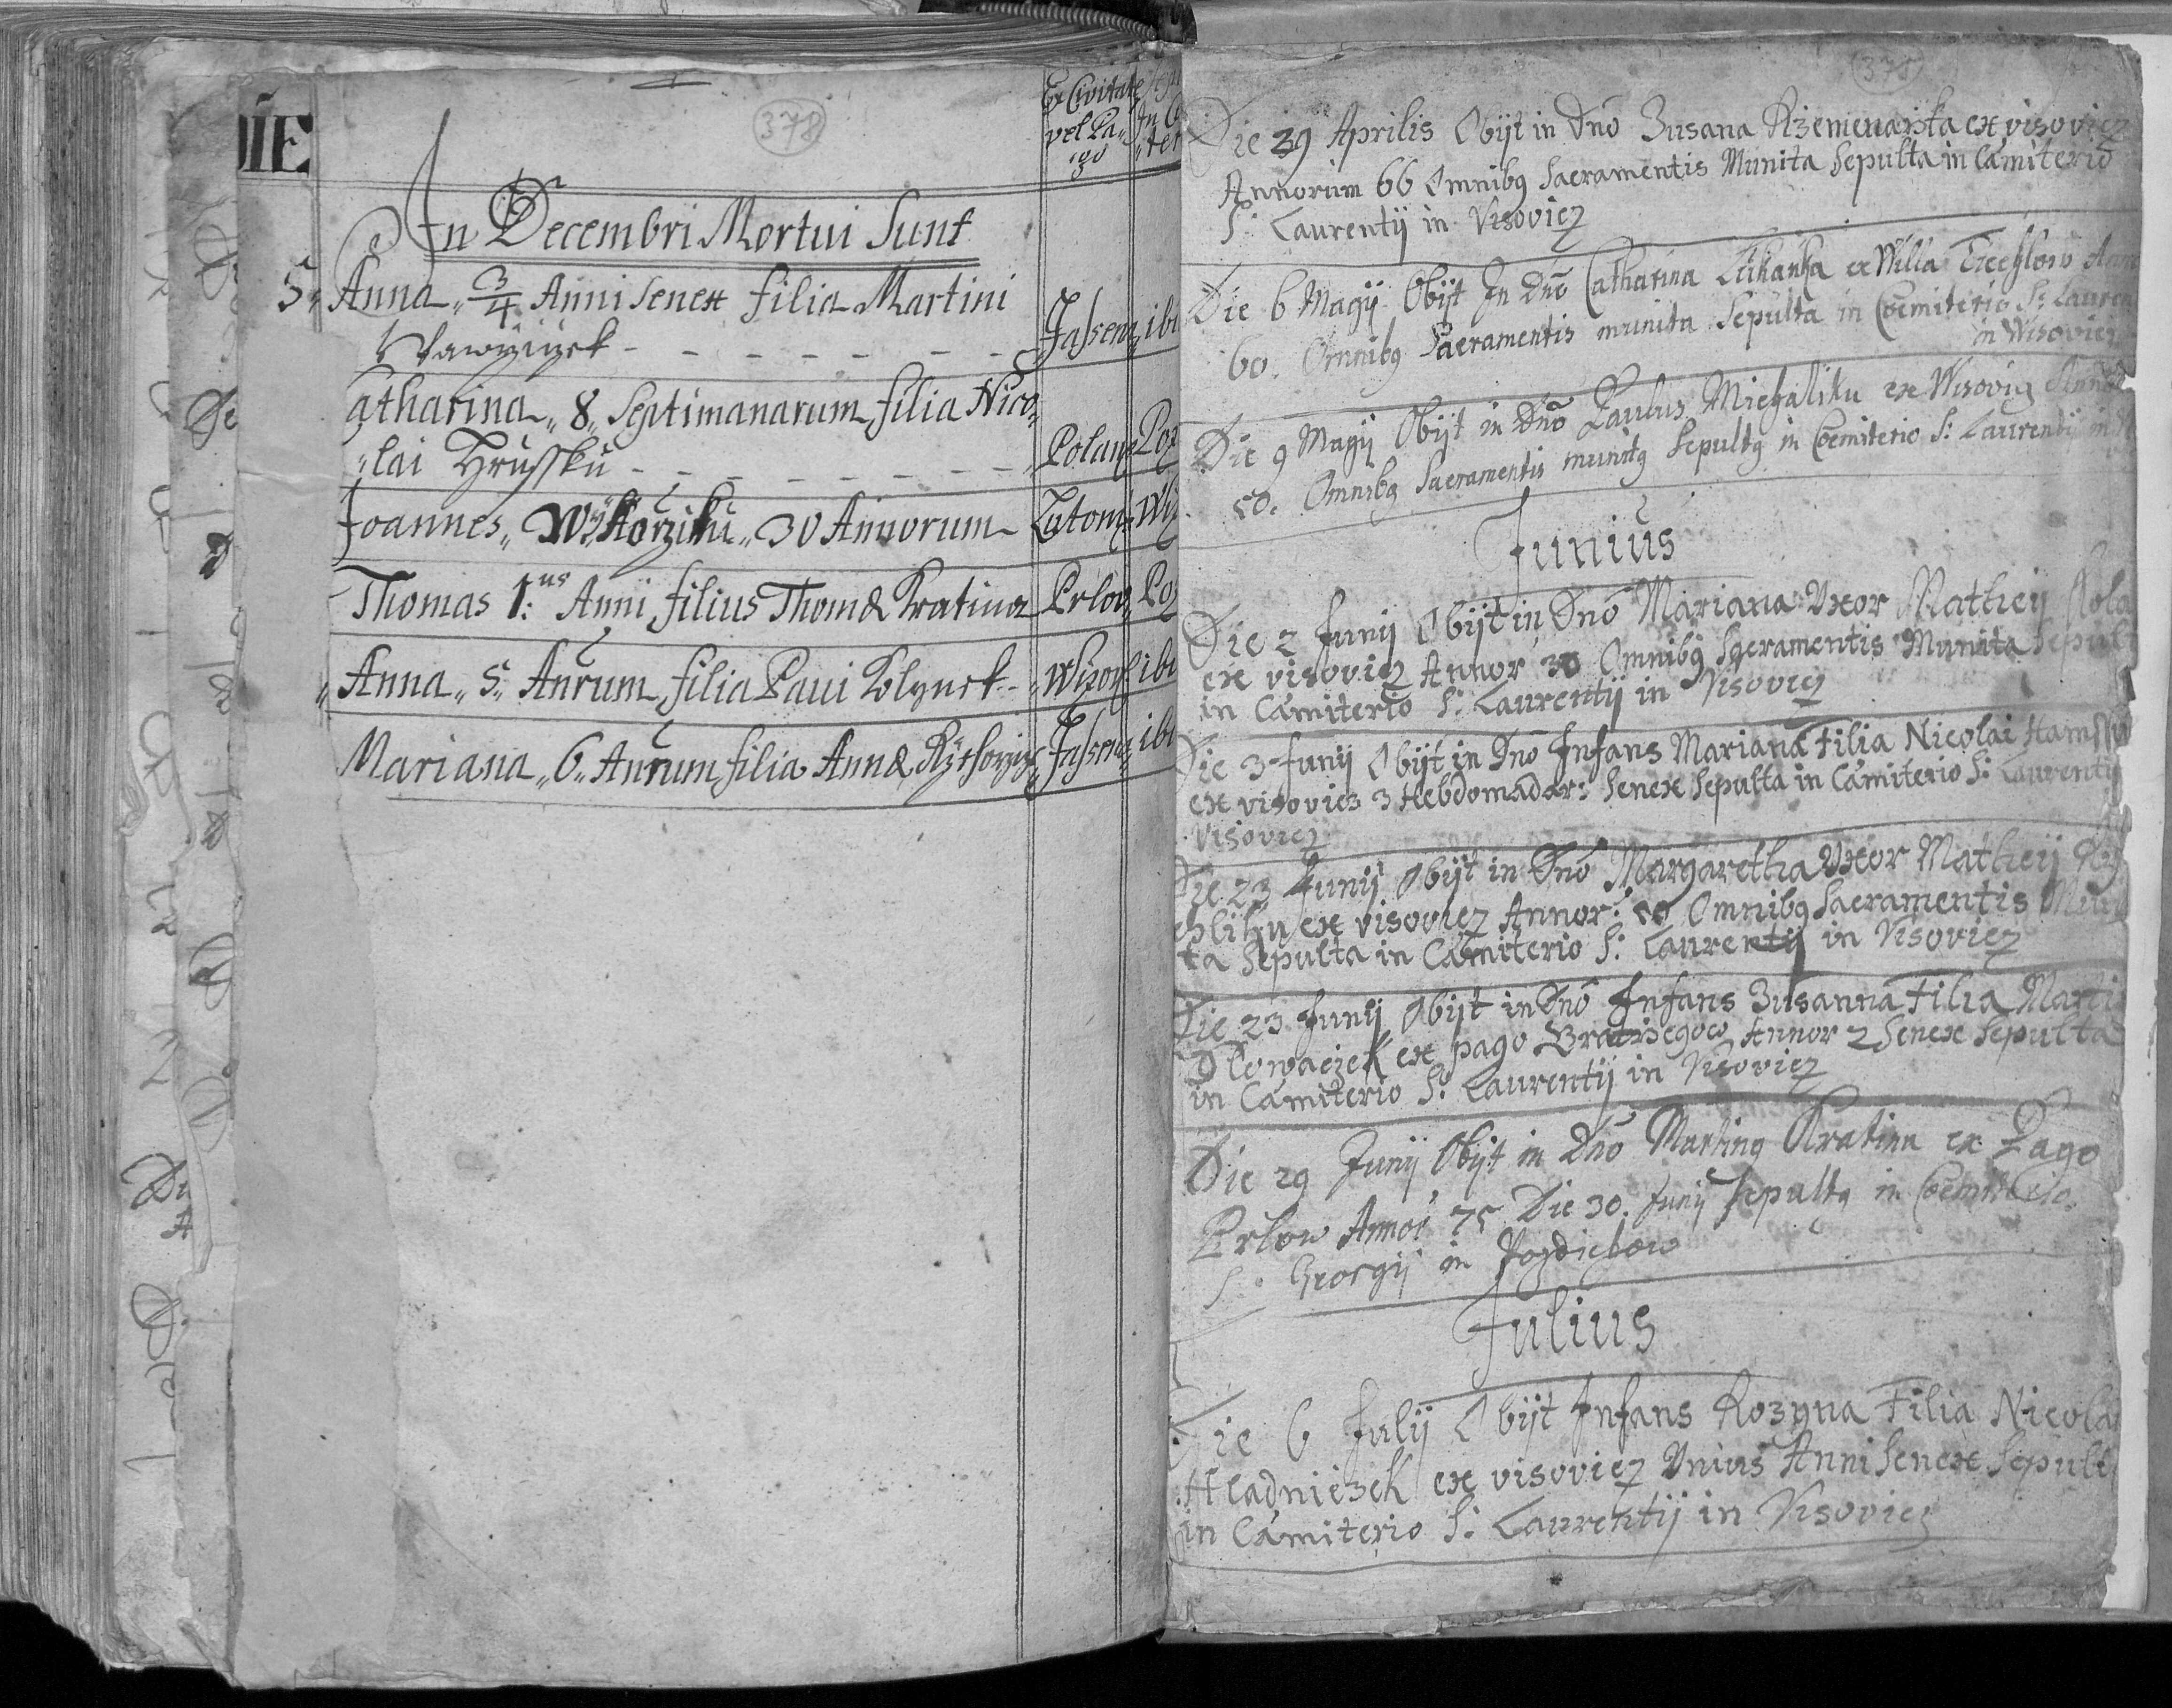 DIE
378
Ex Civitate
vel Pa-
"go
In Decembri Mortui Sunt
5" Anna „ 3/4 Anni Senex filia Martini
Jassen„ ibi
Catharina„ 8„ Septimanarum filia Nico-
"lai Hrussku - - - - - - - - Polan„ Poz
Joannes„ 30 Annorum Lutom„ Wiz
Thomas 1:us Anni filius Thomæ Kratina Prlov„ Poz
"Anna„ 5„ Anrum filia Pavi Wizov„ ibi
Mariana„ 6„ Anrum filia Annæ Jassen„ ibi
378
Die 29 Aprilis Obijt in Dno Zusana Rzemenarzka ex visoviez
Annorum 66 Omnibq Sacramentis Munita Sepulta in Cæmiterio
S: Laurentij in Visoviez
Die 6 Magij Obijt In Dno Catharina ex Willa
60. Omnibq Sacramentis munita Sepulta in Cœmiterio S: Lauren
in Wisoviez
Die 9 Magij Obijt in Dno Paulus Michaliku ex Wisoviz
50. Omnibq Sacramentis munitq Sepultq in Cœmiterio S: Laurentij in
Junius
Die 2 Junij Obijt in Dno Mariana Uxor Mathej
ex visoviez Annor 30 Omnibq Sacramentis Munita Sepult
in Cæmiterio S: Laurentij in Visoviez
Die 3 Junij Obijt in Dno Infans Mariana Filia Nicolai
ex visoviez 3 Hebdomadar: Senex Sepulta in Cæmiterio S: Laurentij
Visoviez
Die 23 Junij Obijt in Dno Margaretha Uxor Matheij
ex visoviez Annor: 50 Omnibq Sacramentis Muni
ta Sepulta in Cæmiterio S: Laurentij in Visoviez
Die 23 Junij Obijt in Dno Infans Zusanna Filia Marti
Slowaczek ex pago Bratrzegow Annor 2 Senex Sepulta
in Cæmiterio S: Laurentij in Visoviez
Die 29 Junij Obijt in Dno Martinq Kratina ex Pago
Prlow Annor 75 Die 30. Junij Sepultq in Cœmiterio
S: Georgij in Pozdiechow
Julius
Die 6 Julij Obijt Infans Rozyna Filia Nicolai
Hladniczek ex visoviez Unius Anni Senex Sepult
in Cæmiterio S: Laurentij in Visoviez